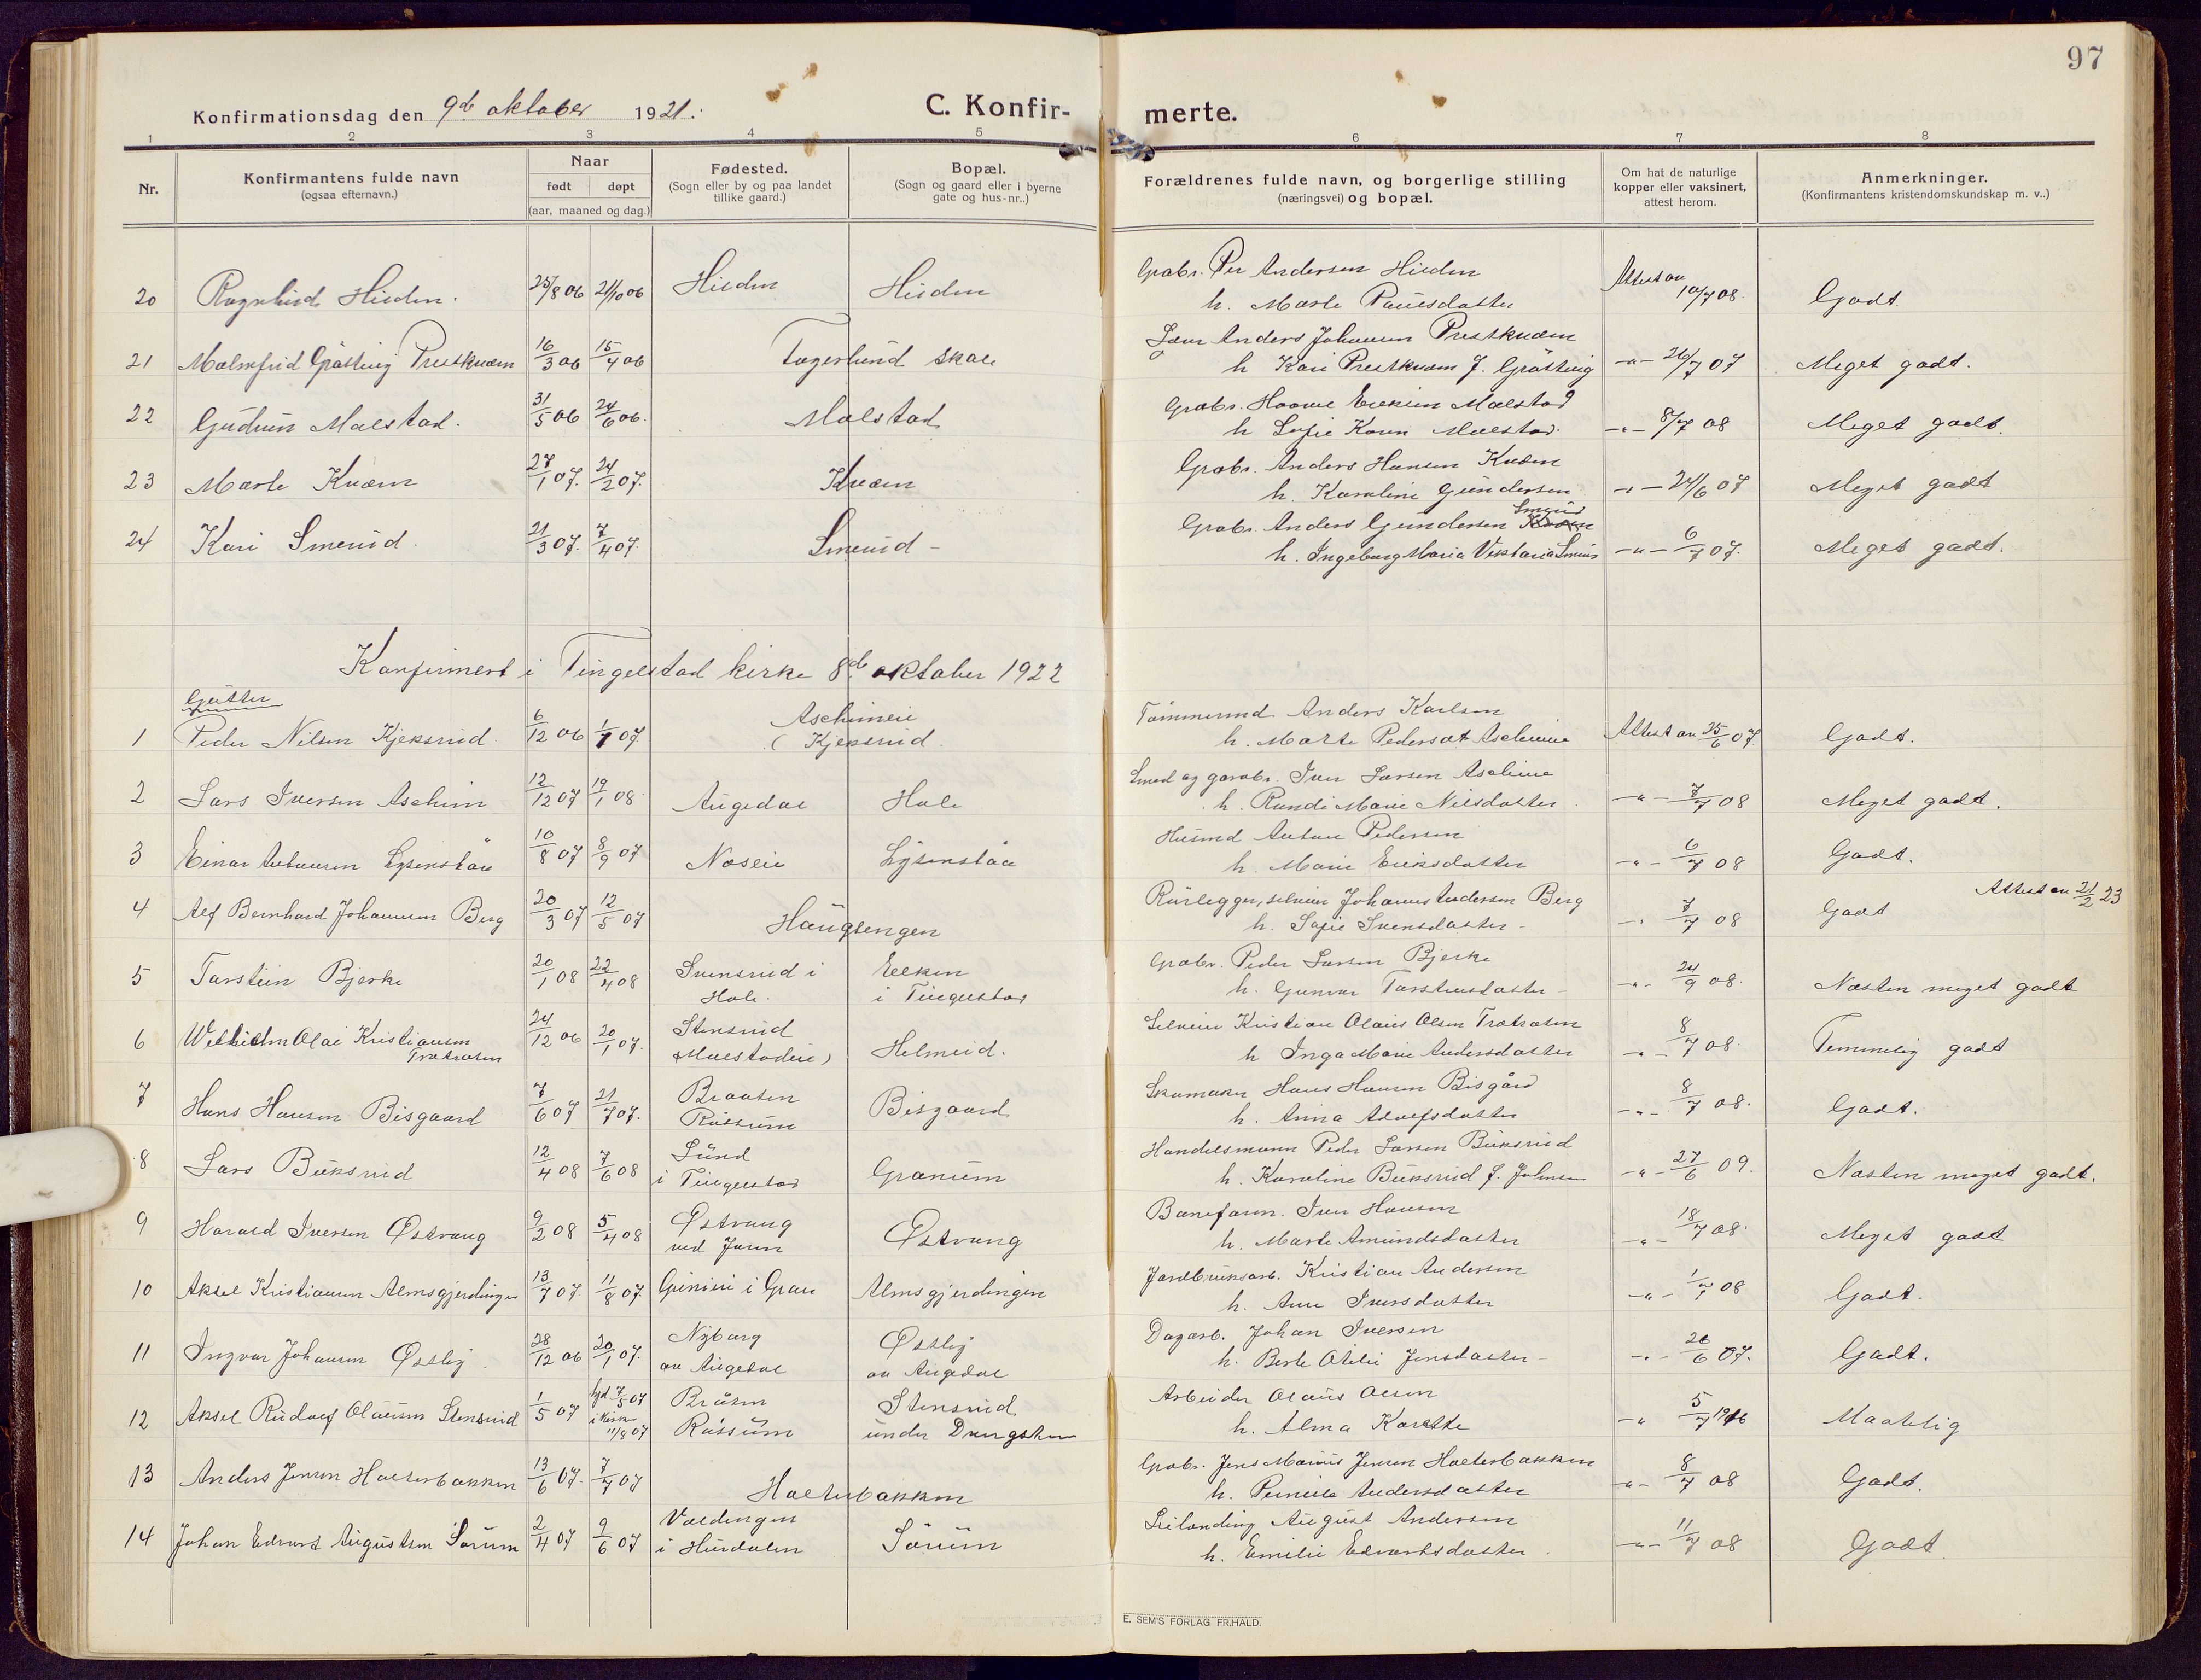 97
Konfirmationsdag den 9de oktober 1921.
C. Konfirmerte.
1 2 3 4 5 6 7 8
Nr.
Konfirmantens fulde navn
(ogsaa efternavn.)
Naar
født døpt
(aar, maaned og dag.)
Fødested.
(Sogn eller by og paa landet
tillike gaard.)
Bopæl.
(Sogn og gaard eller i byerne
gate og hus-nr..)
Forældrenes fulde navn, og borgerlige stilling
(næringsvei) og bopæl.
Om hat de naturlige
kopper eller vaksinert,
attest herom.
Anmerkninger.
(Konfirmantens kristendomskundskap m. v..)
20 Ragnhild Hilden. 25/8 06 21/10 06 Hilden Hilden Grabr. Per Andersen Hilden
h. Marte Paulsdatter Attest av 10/7 08. Godt.
21 Malmfrid Prestkværn 16/3 06 15/4 06 Fagerlund skole Anders Johansen Prestkværn
h Kari Prestkværn f. -"- 26/7 07 Meget godt.
22 Gudrun Malstad. 31/5 06 24/6 06. Molstad Grabr. Eriksen Molstad
h Sofie Karen Molstad. -"- 8/7 08 Meget godt.
23 Marte Kværn 27/1 07. 24/2 07. Kværn Grabr. Anders Hansen Kværn
h. Karoline Gundersen -"- 24/6 07 Meget godt
24 Kari Smerud. 21/3 07. 7/4 07. Smerud - Grabr. Anders Gundersen Smerud
h. Ingeborg Maria Viktoria Smerud -"- 6/7 07. Meget godt.
Konfirmert i Tingelstad kirke 8de oktober 1922
Gutter
1 Peder Nilsen Kjeksrud. 6/12 06 1/1 07 Aschimeie
(Kjeksrud. Tømmermd Anders Karlsen
h. Marte Pedersdt Attest av 25/6 07. Godt.
2 Lars Iversen Aschim 12/12 07 19/1 08 Augedal Hole Smed og garabr. Iver Larsen Aschim
h. Randi Marie Nilsdatter -"- 7/7 08 Meget godt.
3 Einar Antonsen Lysenstøa 10/8 07 8/9 07 Noseie Lysenstøa Husmd Anton Pedersen
h. Marie Eriksdatter -"- 6/7 08 Godt.
4 Alf Bernhard Johannesen Berg 20/3 07 12/5 07 Haugsengen Rørlegger, selveier Johannes Andersen Berg
h. Sofie Svensdatter - -"- 7/7 08 Godt Attest av 21/2 23
5 Torstein Bjerke 20/1 08 22/4 08 Svensrud i
Hole. Elken
i Tingelstad Grabr. Peder Larsen Bjerke
h. Gunvor Torstensdatter - -"- 24/9 08. Næsten meget godt
6 Wilhelm Olai Kristiansen
Trotrosen 24/12 06 20/1 07. Stensrud
(Molstadeie) Helmeid. Selveier Kristian Olaus Olsen Trotrosen
h Inga Marie Andersdatter -"- 8/7 08. Temmelig godt
7 Hans Hansen Bisgaard 7/6 07 21/7 07. Braaten
Røssum Bisgaard Skomaker Hans Hansen Bisgård
h. Anna Adolfsdatter -"- 8/7 08. Godt.
8 Lars Buksrud 12/4 08 7/6 08 Lund
i Tingelstad Granum Handelsmann Peder Larsen Buksrud
h. Karoline Buksrud f. Johnsen -"- 27/6 09. Næsten meget godt.
9 Harald Iversen Østvang 9/2 08 5/4 08 Østvang
ved Jaren Østvang Baneform. Iver Hansen
h. Marte Amundsdatter -"- 18/7 08. Meget godt
10 Aksel Kristiansen Almsgjerdingen 13/7 07 11/8 07 i Gran Almsgjerdingen Jordbruksarb. Kristian Andersen
h. Anne Iversdatter -"- 1/7 08 Godt.
11 Ingvar Johansen Østby 28/12 06 20/1 07. Nyborg
av Augedal Østby
av Augedal Dagarb. Johan Iversen
h. Berte Otilie Jensdatter - -"- 26/6 07. Godt.
12 Aksel Rudolf Olausen Stensrud 1/5 07 hjd 7/5 07
i kirke
11/8 07 Bråten
Røssum Stensrud
under Arbeider Olaus Olsen
h. Alma Karette -"- 5/7 1916 Maatelig
13 Anders Jensen Holterbakken 13/6 07. 7/7 07 Holterbakken Grabr. Jens Marius Jensen Holterbakken
h. Pernille Andersdatter -"- 8/7 08 Godt.
14 Johan Edvard Augustsen Sørum 2/4 07 9/6 07 Voldengen
i Hurdalen Sørum Leilending August Andersen
h. Emilie Edvardsdatter. -"- 11/7 08 Godt
E. SEM'S FORLAG FR.HALD.